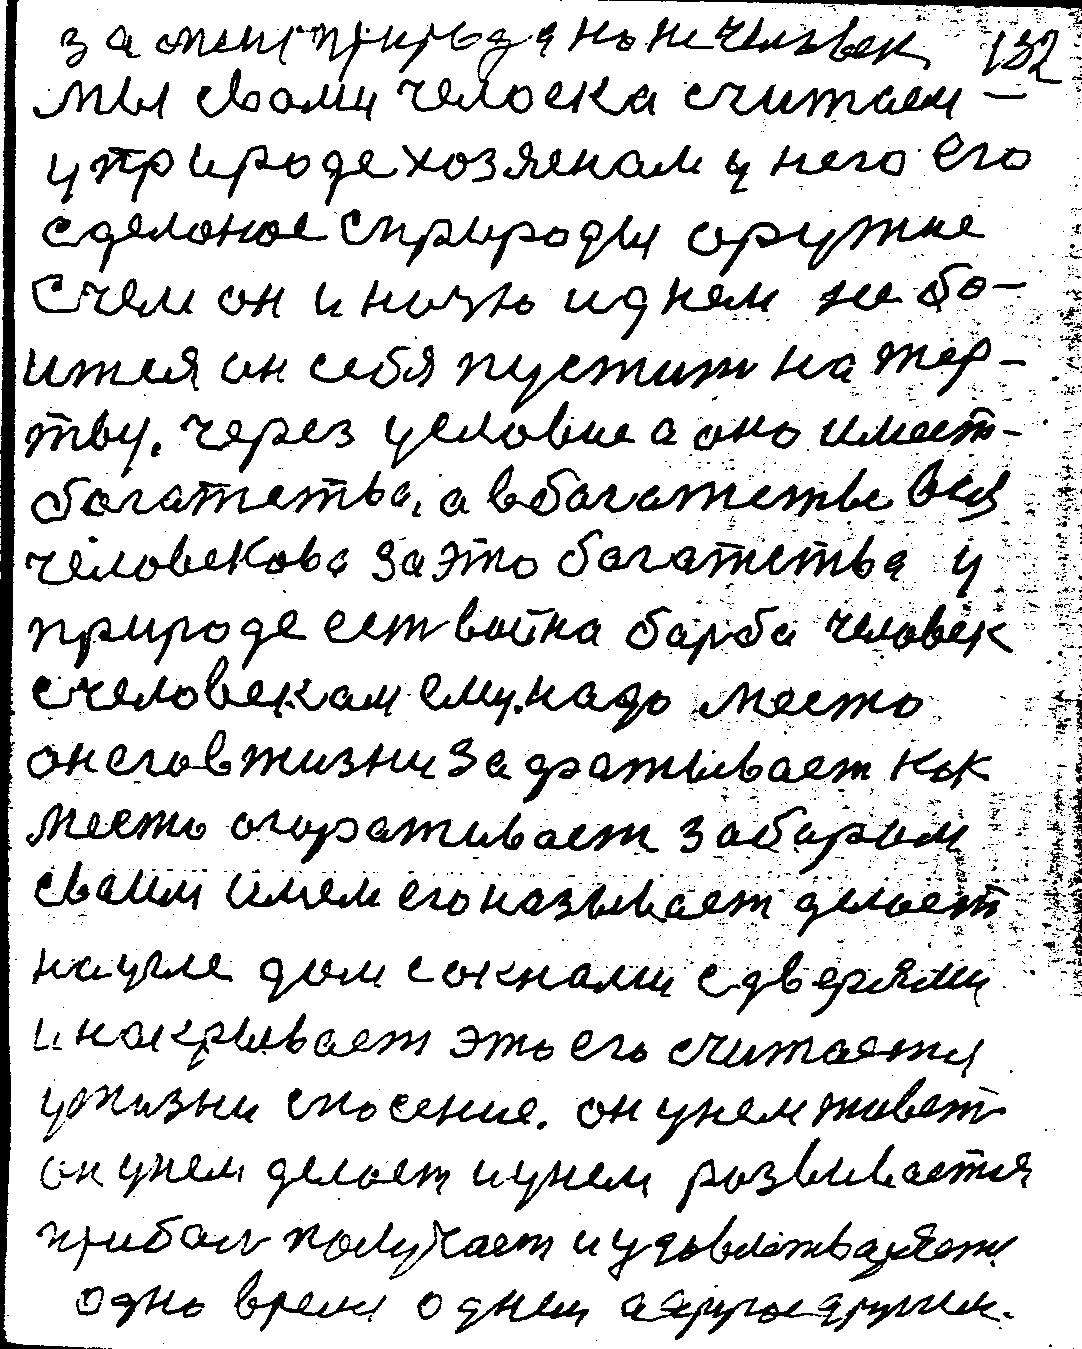 за мени природа но не человек 132
мы свами челоека считаем –
у природе хозяенам у него его
сделоное сприроды оружие
Счем он и ночю и днем не бо–
ится он себя пустит на жер–
тву. через условие а оно имеет–
богатства, а вбогатстве вся
человекова за это богатства у
природе ест война барба человек
счеловекам ему.надо место
он его вжизни Задратывает как
место огоративает забаром
сваим имем его называет делает
наугле дом сокнами сдверями
и накрывает это его считается
ужизни спосение. он унем живет
он унем делает и унем розвивается
прибал получает и удовлетваряет
одно время однем а другое другим.